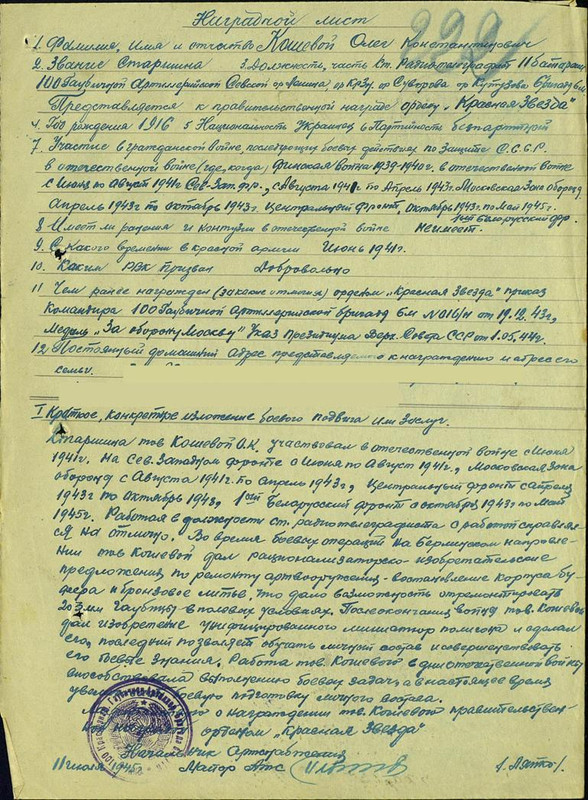 Наградной лист
1. Фамилия, имя и отчество Кошевой Олег Константинович
2. Звание Старшина 3. Должность, часть Ст. Радиотелеграфист 11 батареи
100 Гаубичной Артиллерийской Севской орд. Ленина, ор Кр/Зн. ор Суворова ор Кутузова бригады
Представляется к правительственной награде ордену „Красная Звезда"
4. Год рождения 1916 5 Национальность Украинец 6 Партийность беспартийный
7. Участие в гражданской войне, последующих боевых действиях по Защите С.С.С.Р.
в отечественной войне (где, когда) Финская война 1939-1940г. в отечественной войне
с Июня по Август 1941г Сев-Зап. фр., с Августа 1941г по Апрель 1943г. Московская Зона обороны,
Апрель 1943г по октябрь 1943г. Центральный фронт, октябрь 1943г. по Май 1945г.
1ый Белорусский фр.
8 Имеет ли ранения и контузии в отечественной войне Не имеет.
9. С Какого времени в красной армии Июнь 1941г.
10. Каким РВК Призван Добровольно
11 Чем ранее награжден (за какие отличия) орденом „Красная Звезда" приказ
Командира 100 Гаубичной Артиллерийской бригады БМ №016/н от 19.12.43г,
Медаль „За оборону Москвы" Указ Президиума Верх. Совета СССР от 1.05.44г.
12. Постоянный домашний адрес представляемого к награждению и адрес его
семьи.
I Краткое, конкретное изложение боевого подвига или заслуг.
Старшина тов Кошевой О.К. участвовал в отечественной войне с Июня
1941г. На Сев. Западном фронте с Июня по Август 1941г., Московская Зона
обороны с Августа 1941г. по апрель 1943г, Центральный фронт с Апреля
1943г по Октябрь 1943г, 1ый Белорусский фронт с октября 1943г по Май
1945г. Работая в должности ст. радиотелеграфиста с работой справлял-
ся на отлично. Во время боевых операций на Берлинском направле-
нии тов Кошевой дал рационализаторско-изобретательские
предложения по ремонту артвооружения - востановление корпуса бу-
фера и бронзовое литье, что дало возможность отремонтировать
203мм Гаубицы в полевых условиях. После окончания войны тов. Кошевой
дал изобретение унифицированного миниатюр полигона и сделал
его, последний позволяет обучать личный состав и совершенствовать
его боевые знания. Работа тов. Кошевого в отечественной войне
способствовала выполнению боевых задач, а в настоящее время
боевую подготовку личного состава.
о награждении тов. Кошевой правительствен-
орденом „Красная Звезда"
Начальник Артснабжения
11 июля 1945г. Майор Атс